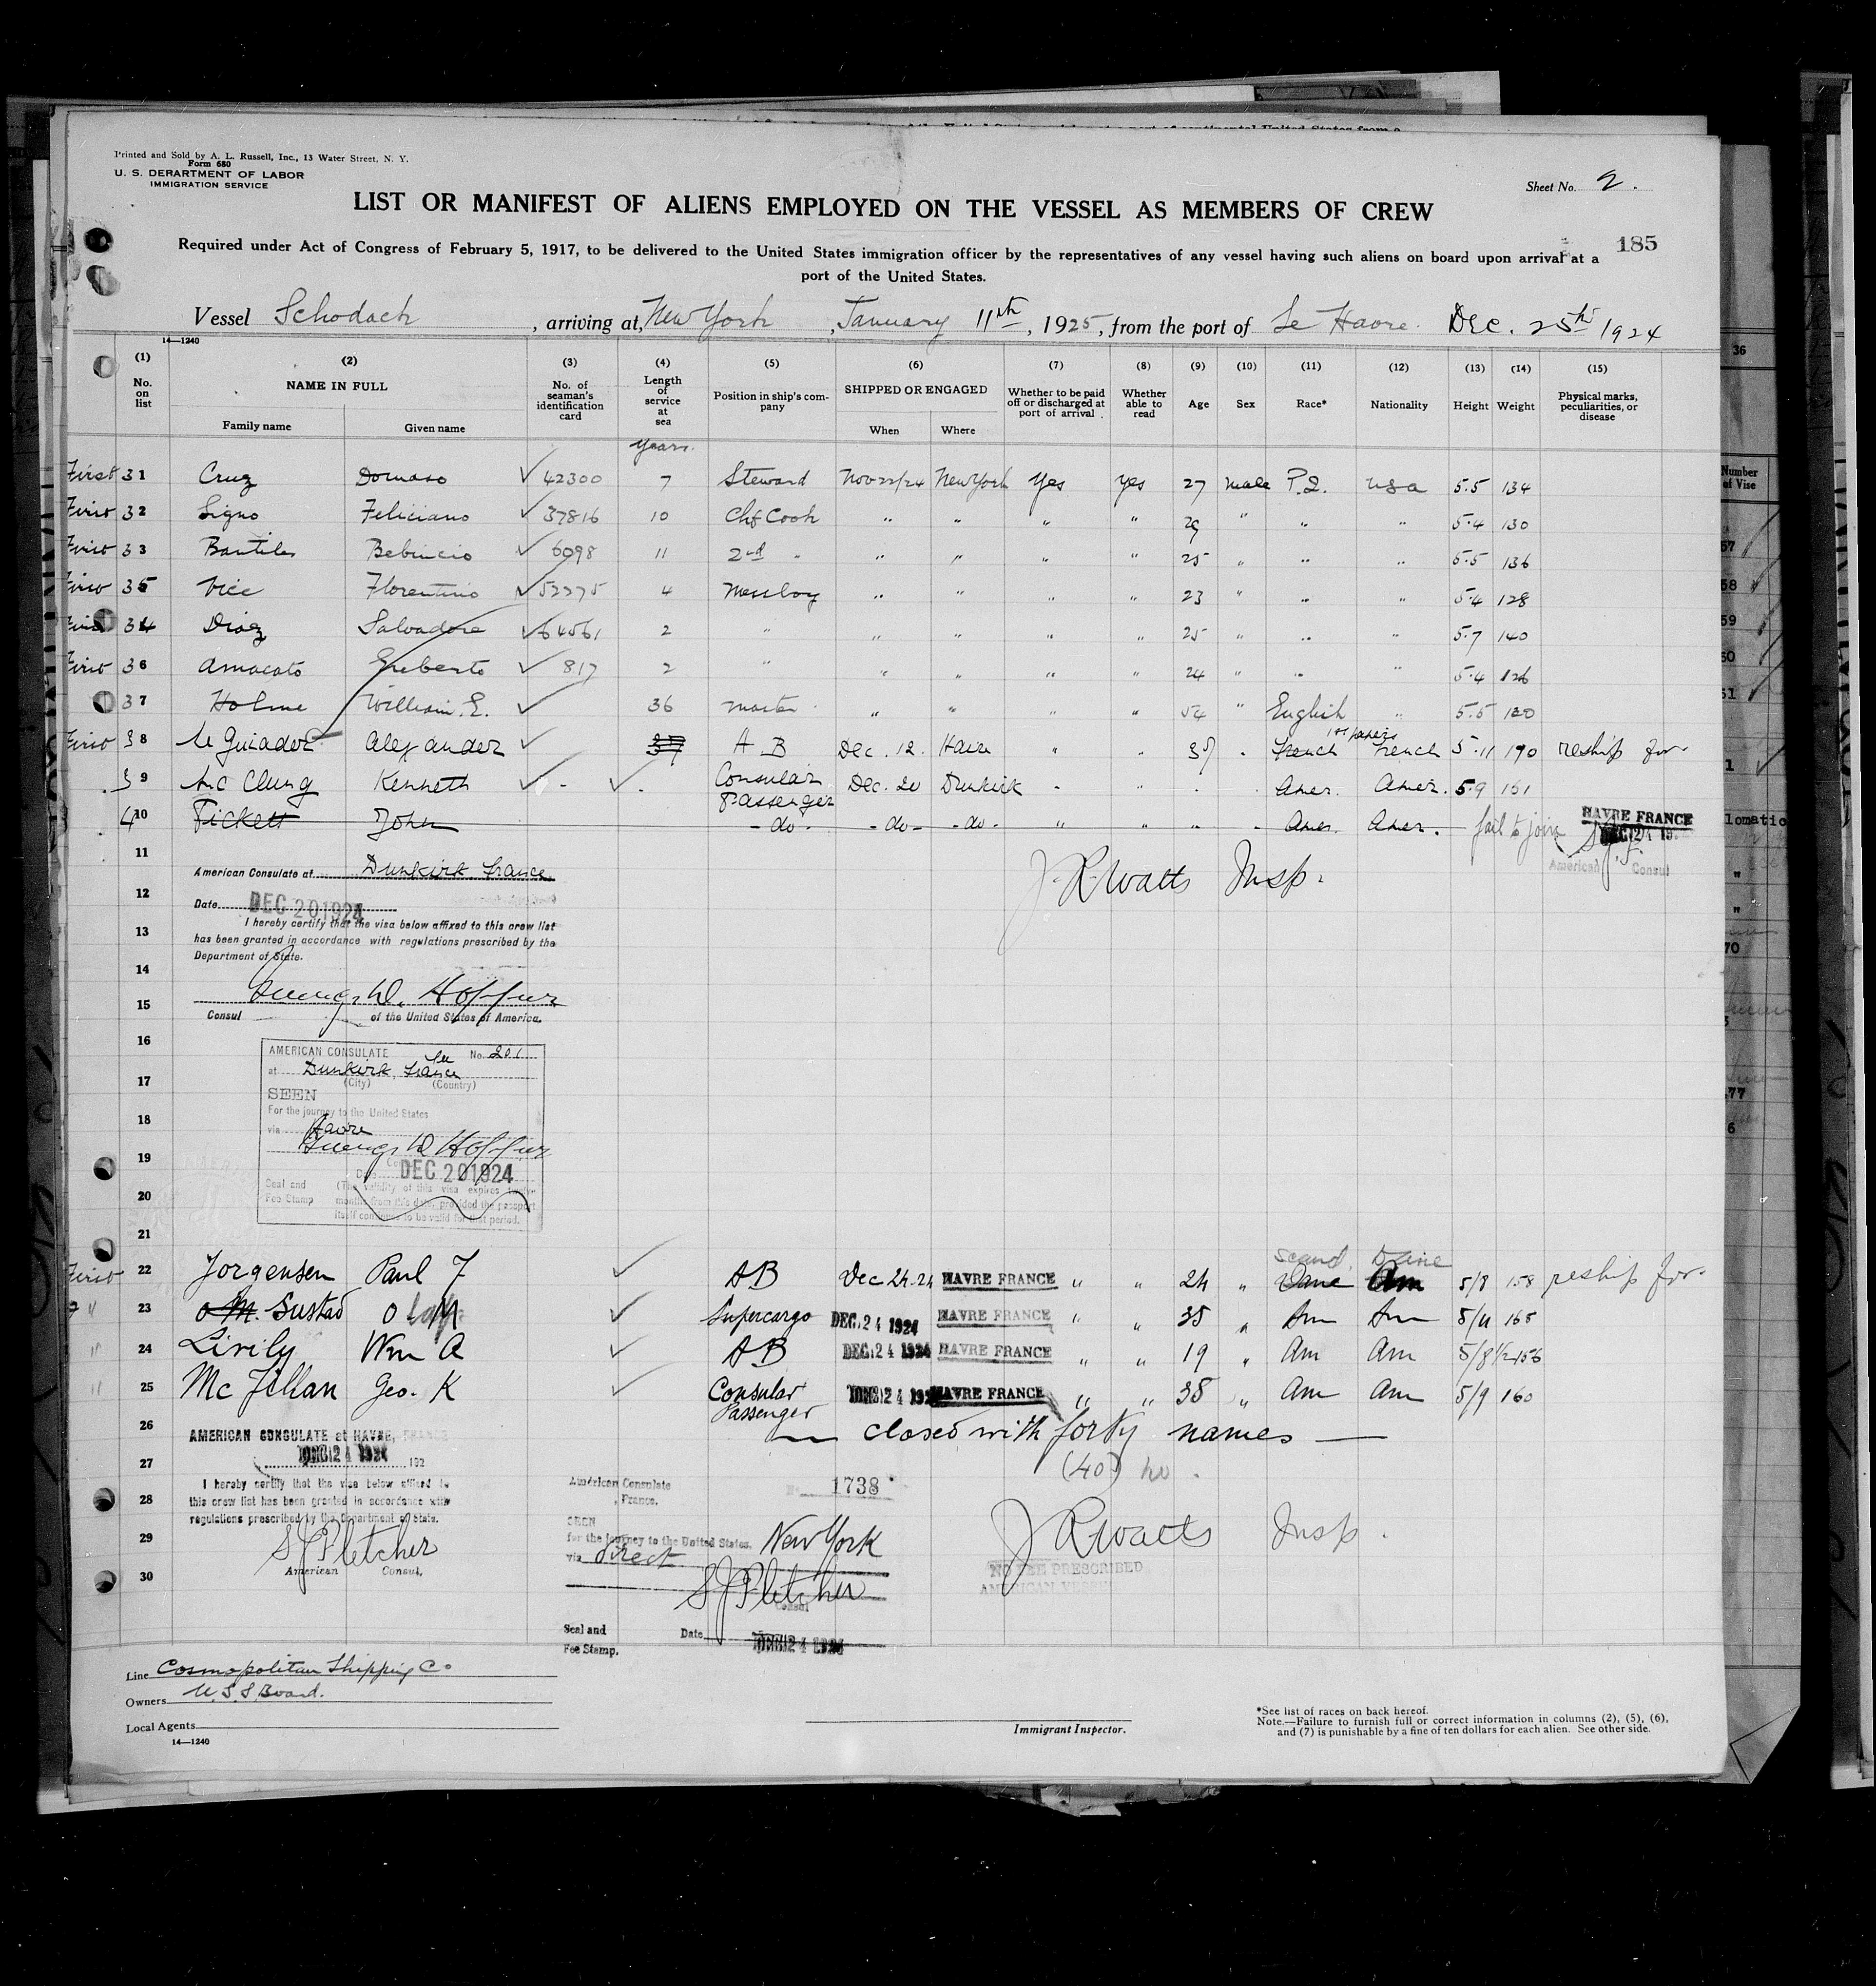 Printed and Sold by A. L. Russell, Inc., 13 Water Street, N. Y.
Form 680
U. S. DERARTMENT OF LABOR
IMMIGRATION SERVICE
Sheet No. 2.
LIST OR MANIFEST OF ALIENS EMPLOYED ON THE VESSEL AS MEMBERS OF CREW
185
Required under Act of Congress of February 5, 1917, to be delivered to the United States immigration officer by the representatives of any vessel having such aliens on board upon arrival at a
port of the United States.
Vessel Schodack, arriving at, New York, January 11th, 1925, from the port of Le Havre. Dec. 25th 1924
14—1240
(1) (2) (3) (4) (5) (6) (7) (8) (9) (10) (11) (12) (13) (14) (15)
No. on list NAME IN FULL Family name Given name No. of seaman's identification card Length of service at sea Position in ship's company SHIPPED OR ENGAGED When Where Whether to be paid off or discharged at port of arrival Whether able to read Age Sex Race* Nationality Height Weight Physical marks, peculiarities, or disease
years.
First 31 Cruz Domaso 42300 7 Steward Nov 22/24 New York Yes Yes 27 male P.I. USA 5.5 134
32 Signo Feliciano 37816 10 Chf Cook " " " " 29 " " " 5.4 130
33 Bautiles Bebincio 6098 11 2nd " " " " " 25 " " " 5.5 136
35 Vice Florentino 52275 4 Messboy " " " " 23 " " " 5.4 128
34 Diaz Salvadore 64561 2 " " " " " 25 " " " 5.7 140
36 Amacato 817 2 " " " " " 24 " " " 5.4 126
37 Holme William. E. 36 master " " " " 54 " English " 5.5
38 Le Guiader Alexander A B Dec. 12. Havre " " 37 French 1st papers French 5.11 190 reship for
39 Mc Clung Kenneth Consular Passenger Dec. 20 Dunkirk " " Amer. Amer. 5.9 161
40 Fickett John - do - - do - - do - " " " Amer. Amer. fail to join
HAVRE FRANCE
American Consul
11
American Consulate at Dunkirk, France
J. R Watts Insp.
12
Date DEC 20 1924
I hereby certify that the visa below affixed to this crew list
13
has been granted in accordance with regulations prescribed by the
Department of State.
14
15
Consul of the United States of America.
16
AMERICAN CONSULATE No. 201
at Dunkirk, France
17
(City) (Country)
SEEN
For the journey to the United States
18
via Havre
19
DEC 20 1924
Seal and Fee Stamp
(The validity of this visa expires twelve
20
months from this date, provided the passport
itself continues to be valid for that period.
21
Scand. Dane
First 22 Jorgensen Paul F AB Dec 24-24 HAVRE FRANCE " " 24 " Dane Am 5/8 158 reship for
23 Sustad Olaf M Supercargo DEC 24 1924 HAVRE FRANCE " " 35 " Am Am 5/11 165
24 Livily Wm A AB DEC 24 1924 HAVRE FRANCE " " 19 " Am Am 5/8 1/2 156
25 Geo. K Consular Passenger DEC 24 1924 HAVRE FRANCE " " 38 " Am Am 5/9 160
26 — closed with forty names —
AMERICAN CONSULATE at HAVRE, FRANCE
DEC 24 1924 192
27
(40)
I hereby certify that the visa below affixed to
28
this crew list has been granted in accordance with
regulations prescribed by the Department of State.
American Consulate
, France.
1738
29
S J Fletcher
American Consul.
30
SEEN
for the journey to the United States. New York
via direct
S J Fletcher
Consul
J R Watts Insp.
NO FEE PRESCRIBED
AMERICAN VESSEL
Seal and
Fee Stamp.
Date DEC 24 1924
Line Cosmopolitan Shipping Co
Owners U.S.S. Board.
Local Agents
14—1240
Immigrant Inspector.
*See list of races on back hereof.
Note.—Failure to furnish full or correct information in columns (2), (5), (6),
and (7) is punishable by a fine of ten dollars for each alien. See other side.
36
Number
of Vise